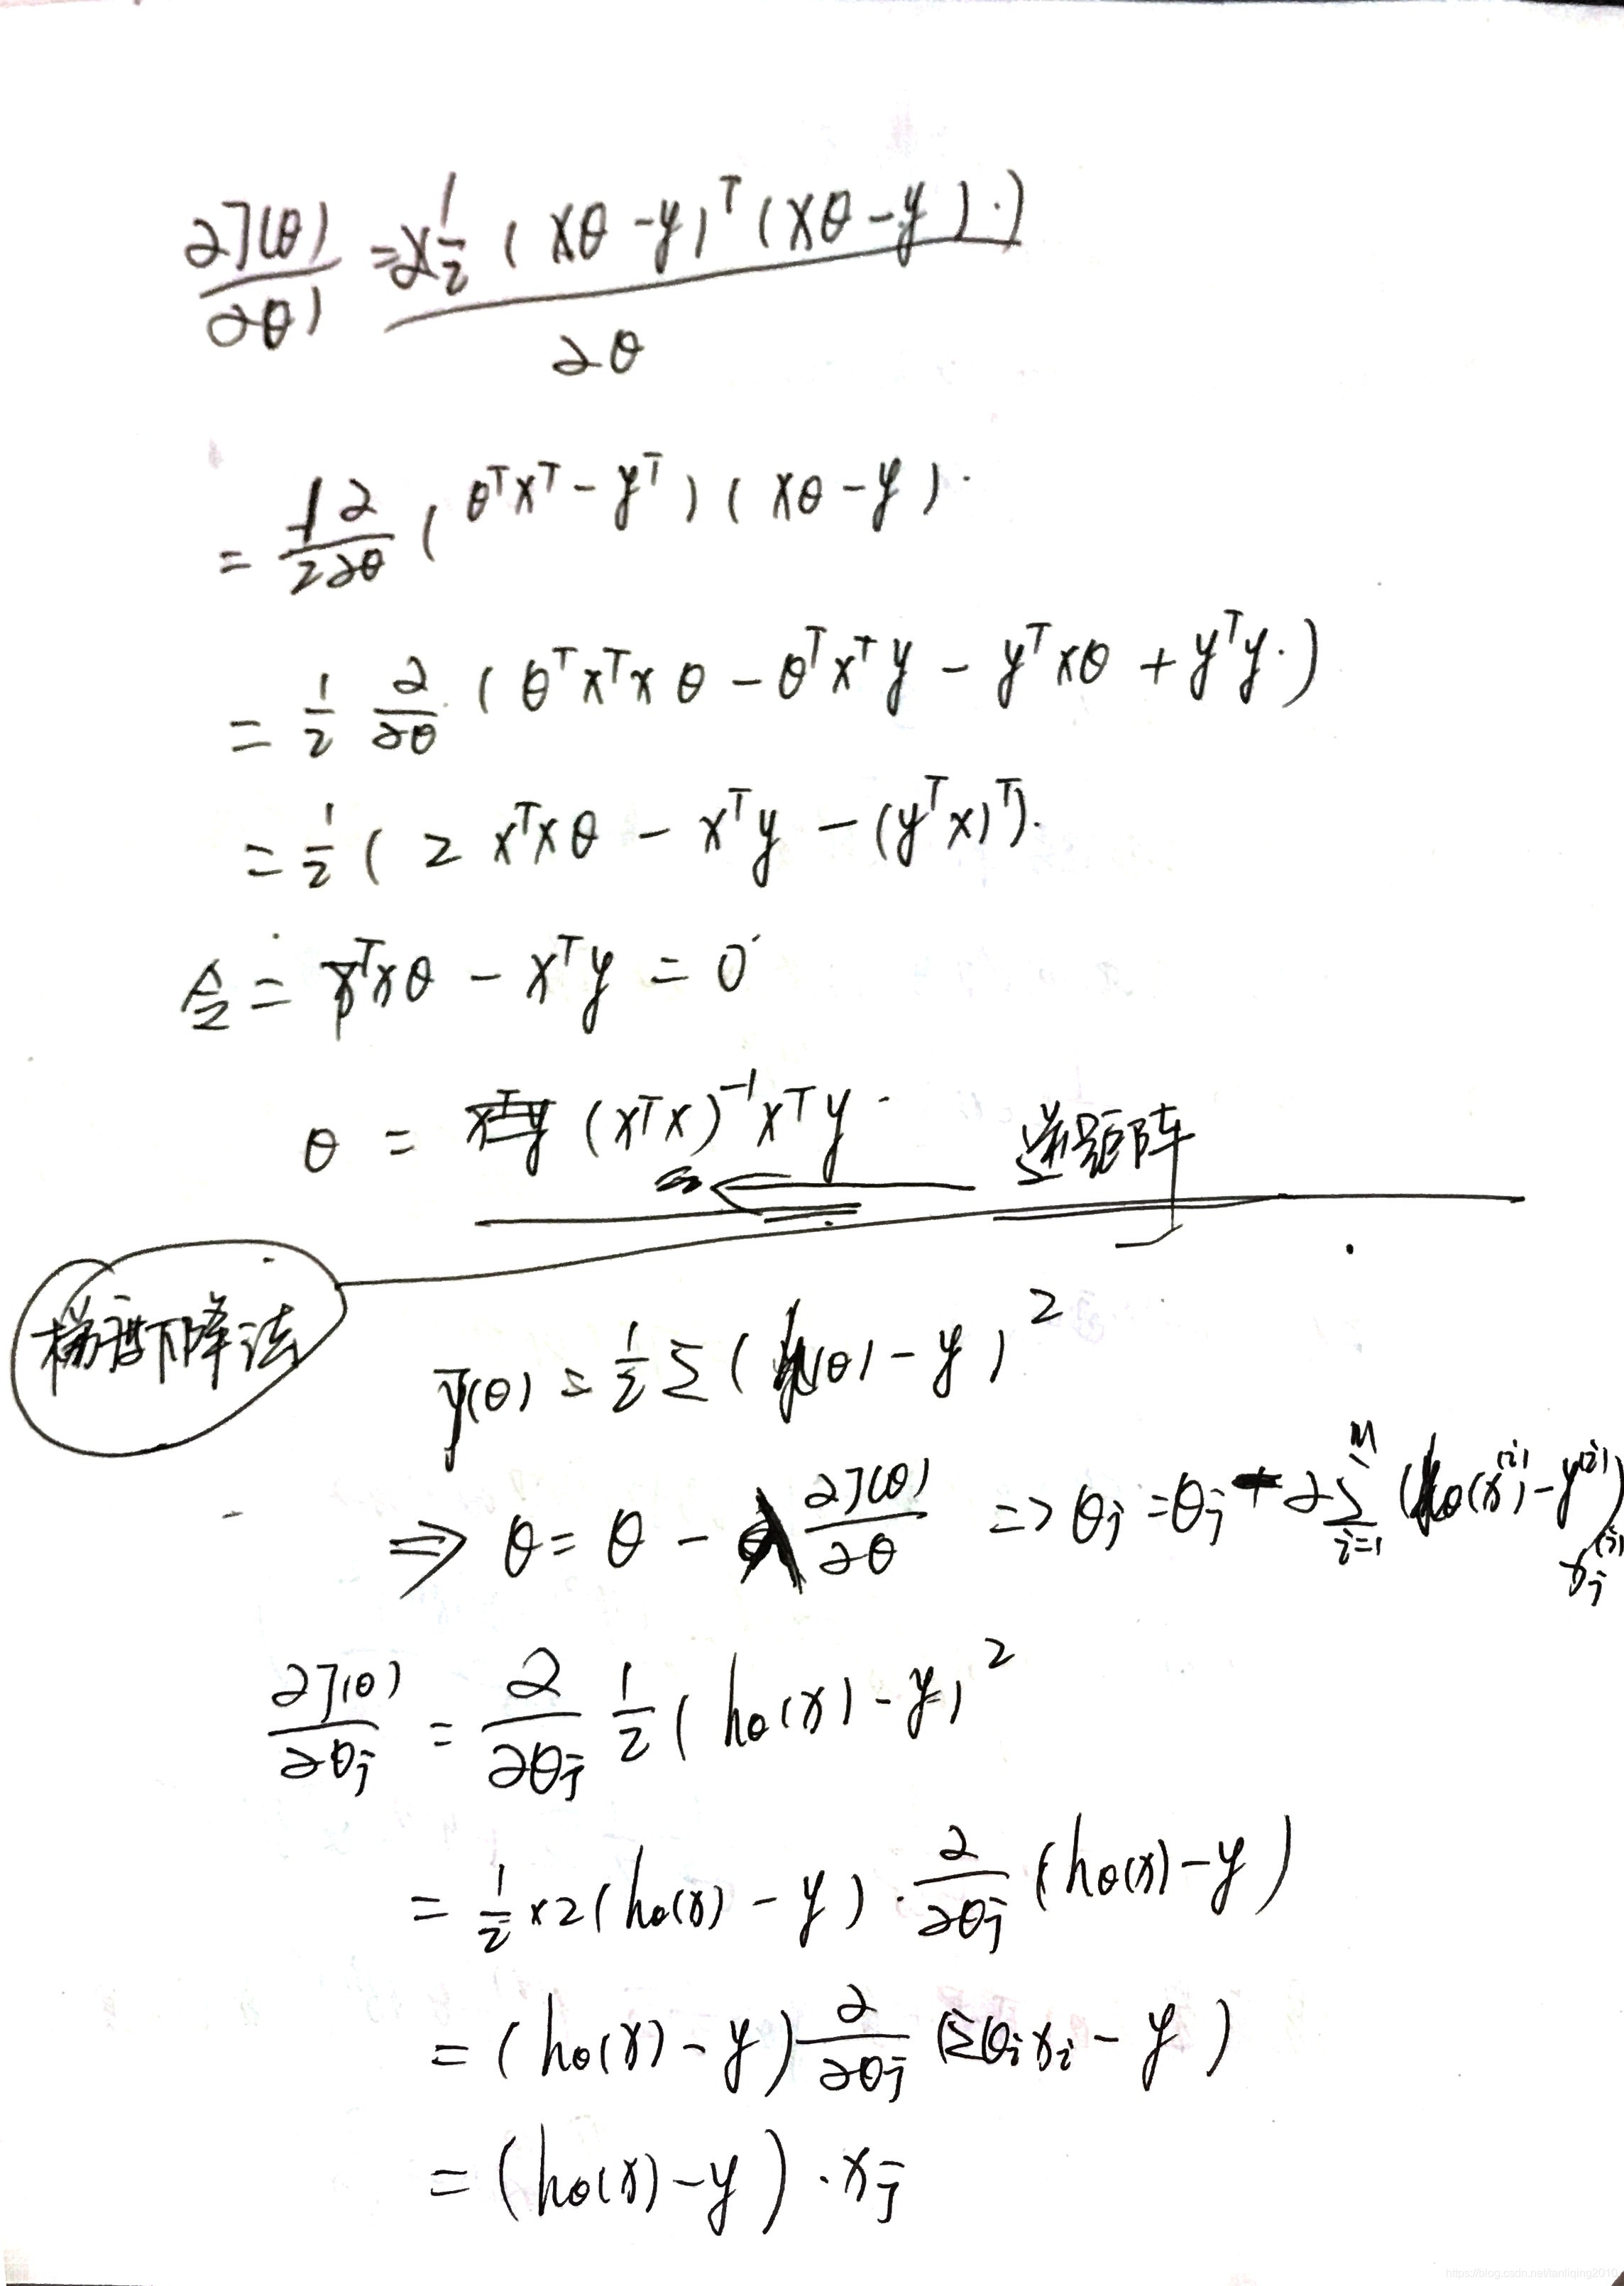 ∂J(θ)/∂θ) = ∂(1/2 (Xθ - y)ᵀ (Xθ - y).)/∂θ
= 1/2 ∂/∂θ (θᵀXᵀ - yᵀ) (Xθ - y).
= 1/2 ∂/∂θ (θᵀXᵀXθ - θᵀXᵀy - yᵀXθ + yᵀy.)
= 1/2 (2XᵀXθ - Xᵀy - (yᵀX)ᵀ).
令 = XᵀXθ - Xᵀy = 0
θ = (XᵀX)⁻¹Xᵀy. 逆矩阵
梯度下降法
J(θ) = 1/2 Σ (h(θ) - y)²
⇒ θ = θ - ∂J(θ)/∂θ => θⱼ = θⱼ - α Σᵢ₌₁ᵐ (hθ(x⁽ⁱ⁾) - y⁽ⁱ⁾) xⱼ⁽ⁱ⁾
∂J(θ)/∂θⱼ = ∂/∂θⱼ 1/2 (hθ(x) - y)²
= 1/2 ×2 (hθ(x) - y) · ∂/∂θⱼ (hθ(x) - y)
= (hθ(x) - y) ∂/∂θⱼ (Σθᵢxᵢ - y)
= (hθ(x) - y) · xⱼ